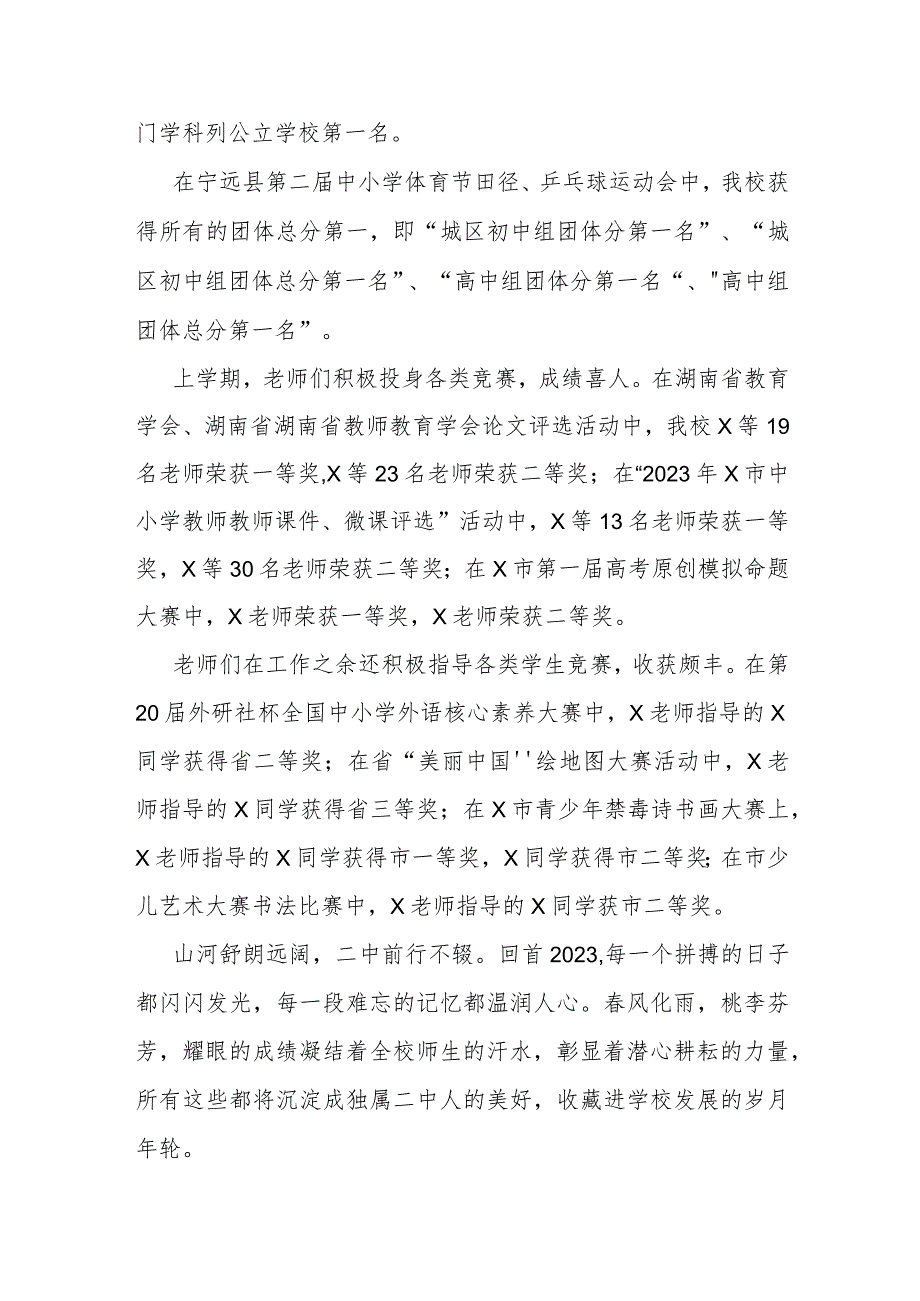 门学科列公立学校第一名。
在宁远县第二届中小学体育节田径、乒乓球运动会中，我校获
得所有的团体总分第一，即“城区初中组团体分第一名”、“城
区初中组团体总分第一名”、“高中组团体分第一名“、"高中组
团体总分第一名”。
上学期，老师们积极投身各类竞赛，成绩喜人。在湖南省教育
学会、湖南省湖南省教师教育学会论文评选活动中，我校 X 等 19
名老师荣获一等奖,X 等 23 名老师荣获二等奖；在“2023 年 X 市中
小学教师教师课件、微课评选”活动中，X 等 13 名老师荣获一等
奖，X 等 30 名老师荣获二等奖；在 X 市第一届高考原创模拟命题
大赛中，X 老师荣获一等奖，X 老师荣获二等奖。
老师们在工作之余还积极指导各类学生竞赛，收获颇丰。在第
20 届外研社杯全国中小学外语核心素养大赛中，X 老师指导的 X
同学获得省二等奖；在省“美丽中国''绘地图大赛活动中，X 老
师指导的 X 同学获得省三等奖；在 X 市青少年禁毒诗书画大赛上，
X 老师指导的 X 同学获得市一等奖，X 同学获得市二等奖；在市少
儿艺术大赛书法比赛中，X 老师指导的 X 同学获市二等奖。
山河舒朗远阔，二中前行不辍。回首 2023,每一个拼搏的日子
都闪闪发光，每一段难忘的记忆都温润人心。春风化雨，桃李芬
芳，耀眼的成绩凝结着全校师生的汗水，彰显着潜心耕耘的力量，
所有这些都将沉淀成独属二中人的美好，收藏进学校发展的岁月
年轮。